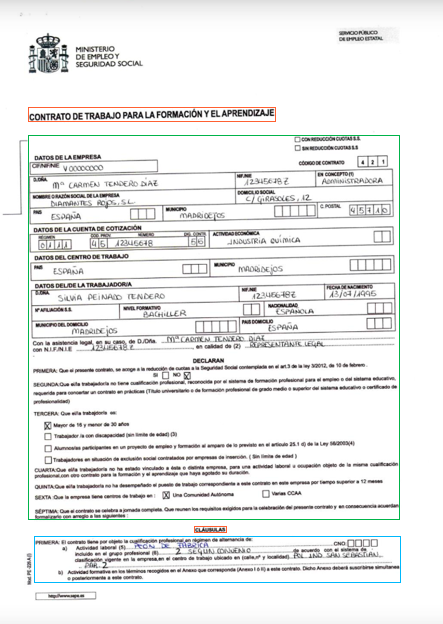 MINISTERIO
DE EMPLEO Y
SEGURIDAD SOCIAL
SERVICIO PÚBLICO
DE EMPLEO ESTATAL
CONTRATO DE TRABAJO PARA LA FORMACIÓN Y EL APRENDIZAJE
CON REDUCCIÓN CUOTAS S.S.
SIN REDUCCIÓN CUOTAS S.S.
DATOS DE LA EMPRESA
CÓDIGO DE CONTRATO 4 2 1
CIF/NIF/NIE V00000000
D./DÑA. NIF/NIE EN CONCEPTO (1)
Mª CARMEN TENDERO DÍAZ 12345678Z ADMINISTRADORA
NOMBRE O RAZÓN SOCIAL DE LA EMPRESA DOMICILIO SOCIAL
DIAMANTES ROJOS, S.L C/ GIRASOLES, 12
PAIS MUNICIPIO C. POSTAL
ESPAÑA MADRIDEJOS 45710
DATOS DE LA CUENTA DE COTIZACIÓN
RÉGIMEN COD. PROV. NÚMERO DIG. CONTR. ACTIVIDAD ECONÓMICA
0111 45 12345678 56 INDUSTRIA QUÍMICA
DATOS DEL CENTRO DE TRABAJO
PAIS MUNICIPIO
ESPAÑA MADRIDEJOS
DATOS DEL/DE LA TRABAJADOR/A
D./DÑA. NIF/NIE FECHA DE NACIMIENTO
SILVIA PEINADO TENDERO 12345678Z 13/07/1995
Nº AFILIACIÓN S.S. NIVEL FORMATIVO NACIONALIDAD
BACHILLER ESPAÑOLA
MUNICIPIO DEL DOMICILIO PAIS DOMICILIO
MADRIDEJOS ESPAÑA
Con la asistencia legal, en su caso, de D./Dña. Mª CARMEN TENDERO DÍAZ
con N.I.F./N.I.E. 12345678Z en calidad de (2) REPRESENTANTE LEGAL
DECLARAN
PRIMERA: Que el presente contrato, se acoge a la reducción de cuotas a la Seguridad Social contemplada en el art.3 de la ley 3/2012, de 10 de febrero.
SI NO X
SEGUNDA: Que el/la trabajador/a no tiene cualificación profesional, reconocida por el sistema de formación profesional para el empleo o del sistema educativo,
requerida para concertar un contrato en prácticas (Título universitario o de formación profesional de grado medio o superior del sistema educativo o certificado de
profesionalidad)
TERCERA: Que el/la trabajador/a es:
X Mayor de 16 y menor de 30 años
Trabajador/a con discapacidad (sin límite de edad) (3)
Alumno/a/es participantes en un proyecto de empleo y formación al amparo de lo previsto en el artículo 25.1 d) de la Ley 56/2003(4)
Trabajadores en situación de exclusión social contratados por empresas de inserción. ( Sin límite de edad )
CUARTA: Que el/la trabajador/a no ha estado vinculado a ésta o distinta empresa, para una actividad laboral u ocupación objeto de la misma cualificación
profesional, con otro contrato para la formación y el aprendizaje que haya agotado su duración.
QUINTA: Que el/la trabajador/a no ha desempeñado el puesto de trabajo correspondiente a este contrato en esta empresa por tiempo superior a 12 meses
SEXTA :Que la empresa tiene centros de trabajo en : X Una Comunidad Autónoma Varias CCAA
SÉPTIMA: Que el contrato se celebra a jornada completa. Que reunen los requisitos exigidos para la celebración del presente contrato y en consecuencia acuerdan
formalizarlo con arreglo a las siguientes :
CLÁUSULAS
PRIMERA: El contrato tiene por objeto la cualificación profesional, en régimen de alternancia de:
a) Actividad laboral (5) PEÓN DE FÁBRICA CNO:
incluido en el grupo profesional (6) 2 SEGÚN CONVENIO de acuerdo con el sistema de
clasificación vigente en la empresa, en el centro de trabajo ubicado en (calle, nº y localidad) POL. IND. SAN SEBASTIÁN
b) Actividad formativa en los términos recogidos en el Anexo que corresponda (Anexo I ó II) a este contrato. Dicho Anexo deberá suscribirse simultanea
o posteriormente a este contrato.
http://www.sepe.es